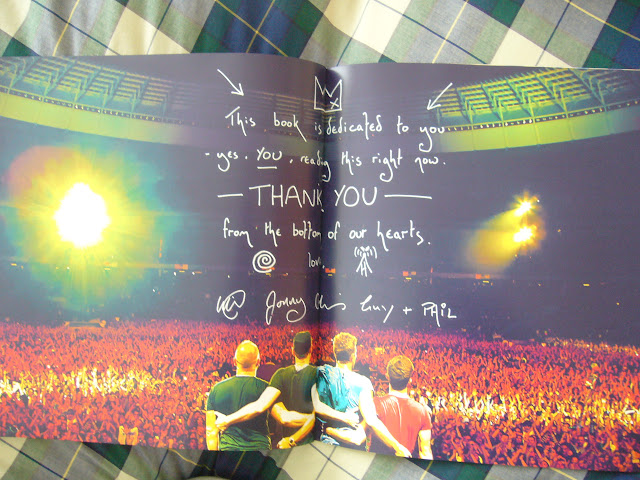 This book is dedicated to you
- yes. YOU. reading this right now.
— THANK YOU —
from the bottom of our hearts.
love
Jonny Chris Guy + PHIL